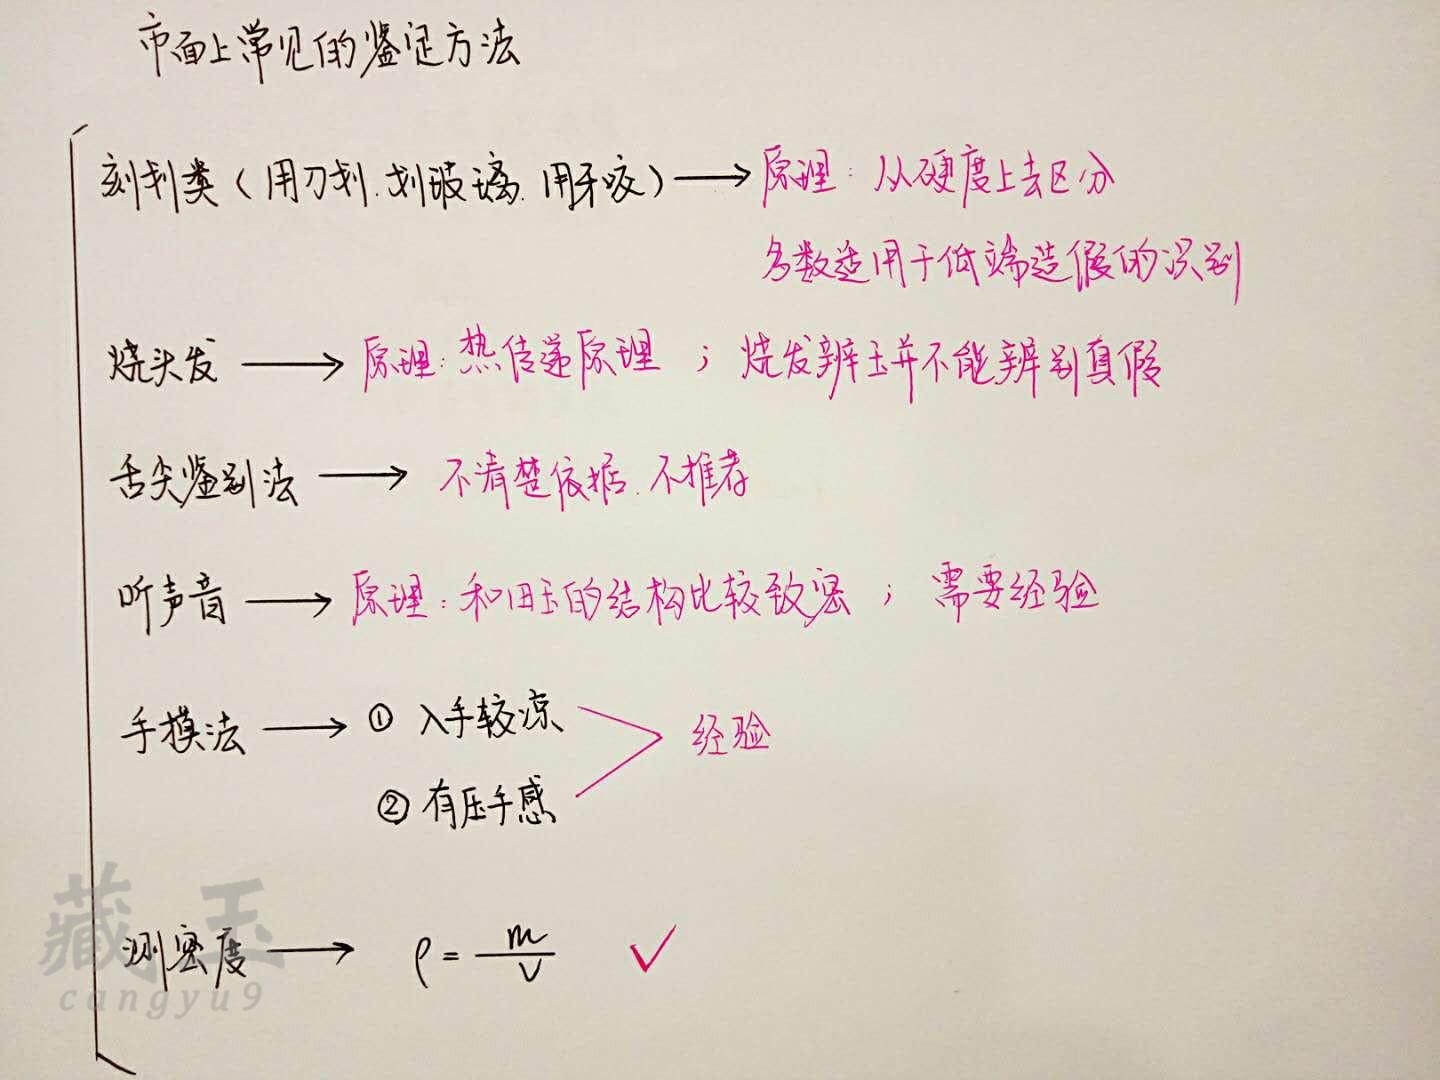 市面上常见的鉴定方法
刻划类（用刀划.划玻璃.用牙咬）→原理：从硬度上去区分
多数适用于低端造假的识别
烧头发→原理：热传递原理；烧发辨玉并不能辨别真假
舌尖鉴别法→不清楚依据.不推荐
听声音→原理：和田玉的结构比较致密；需要经验
手摸法→①入手较凉
经验
②有压手感
测密度→ρ=m/V ✓
藏玉
cangyu9